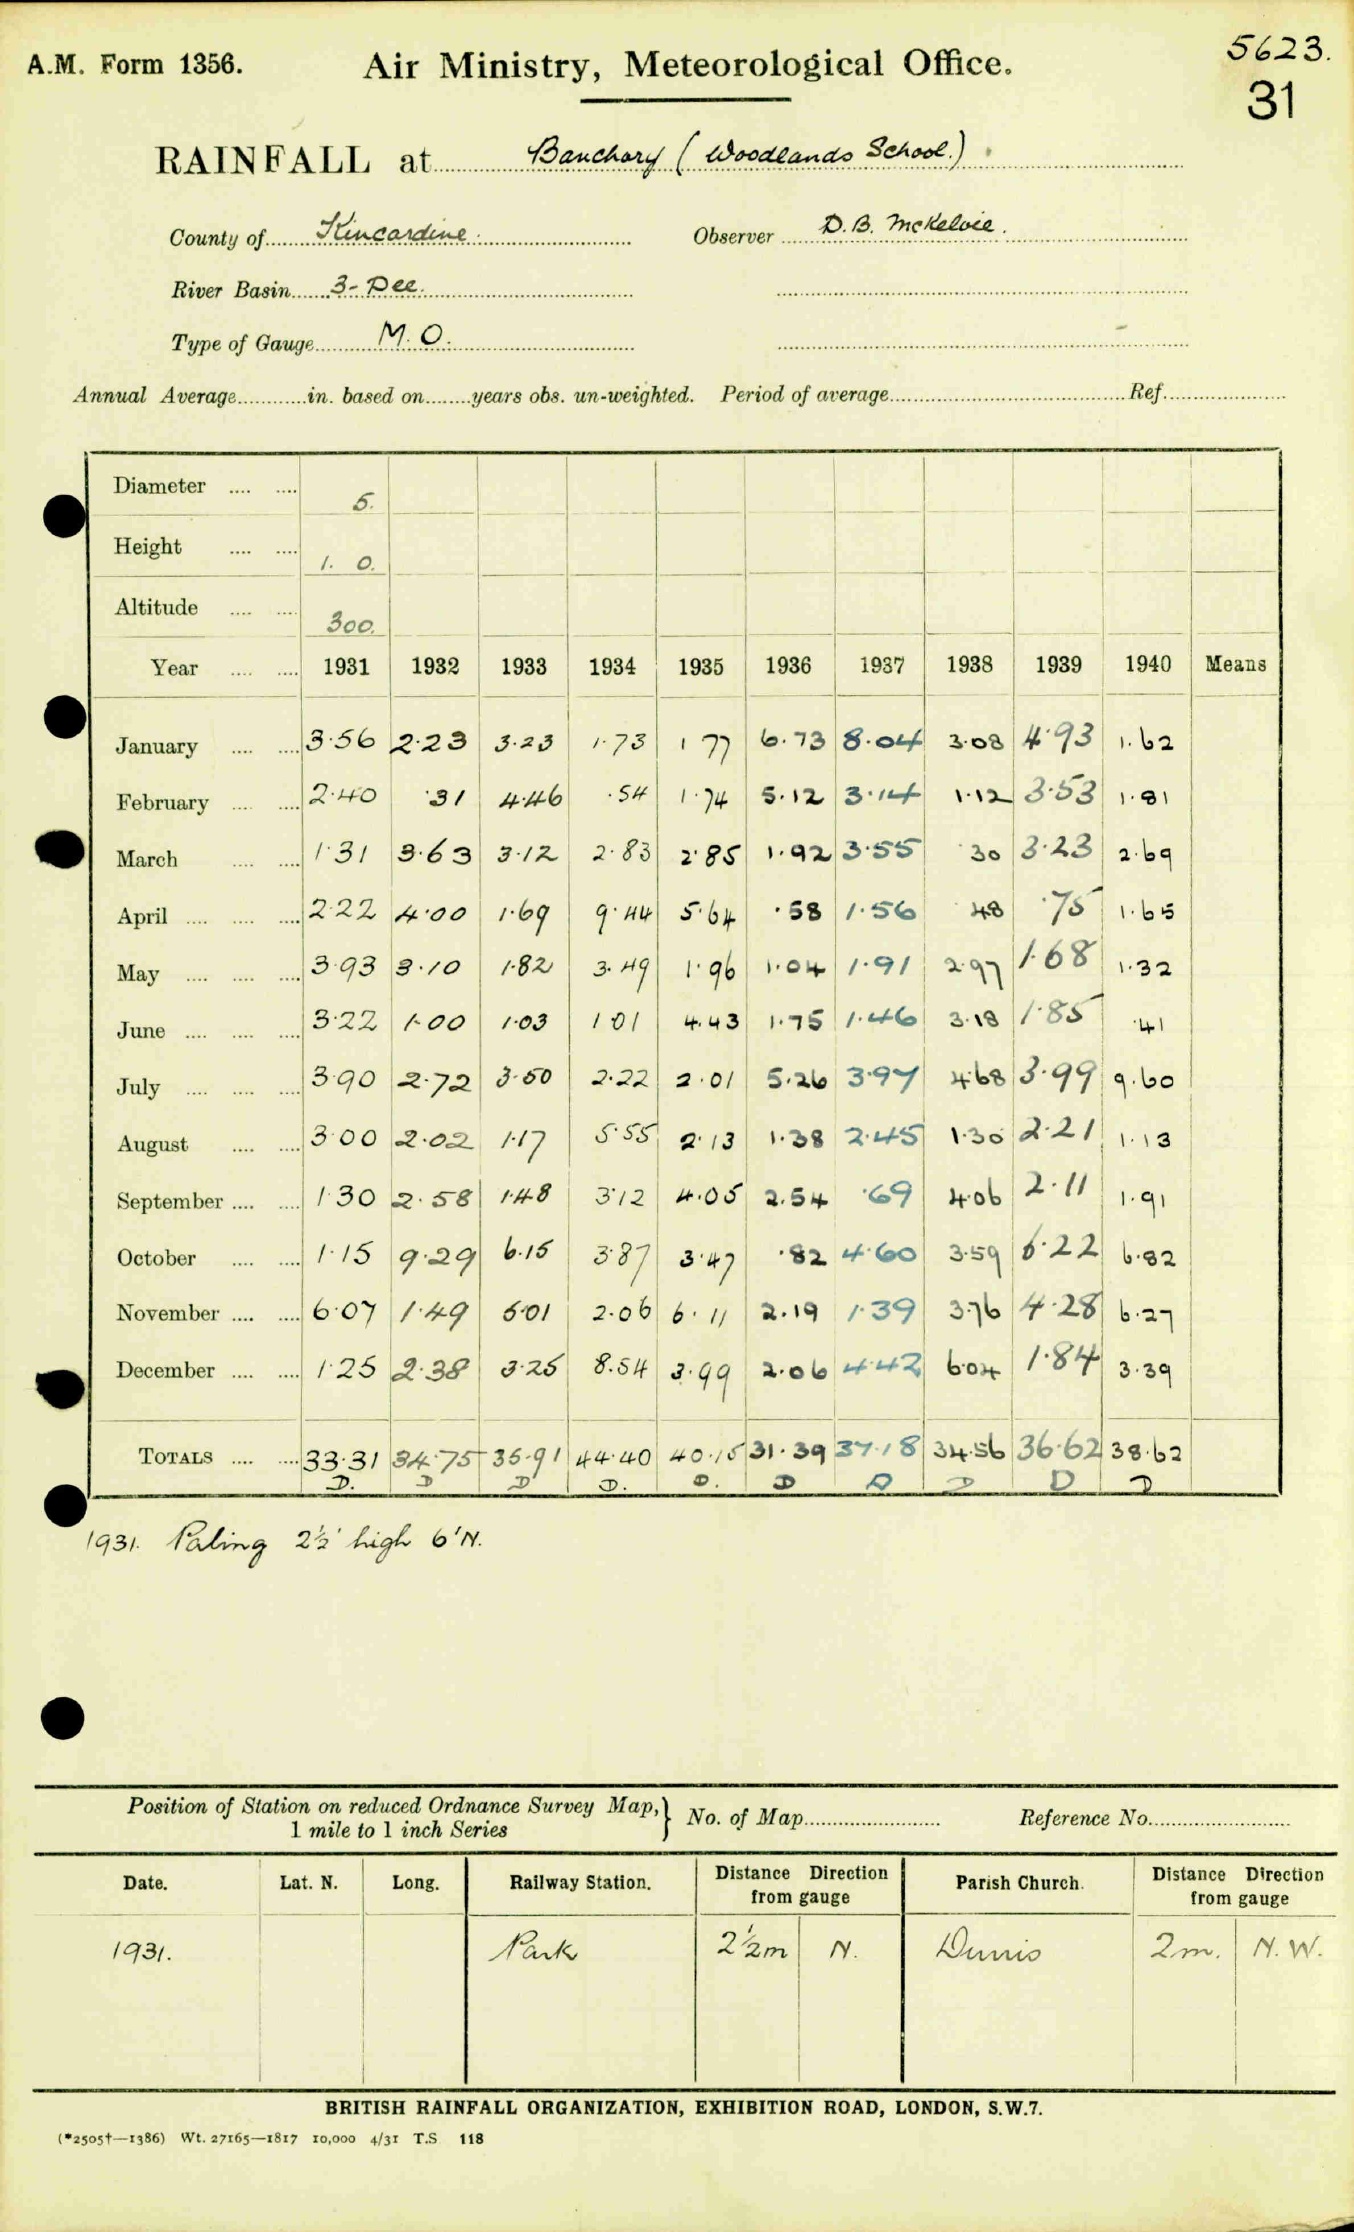 A.M. Form 1356.
Air Ministry, Meteorological Office.
5623.
31
RAINFALL at Banchory (Woodlands School.)
County of Kincardine. Observer D.B. McKelvie.
River Basin 3-Dee.
Type of Gauge M.O.
Annual Average in. based on years obs. un-weighted. Period of average Ref.
Diameter 5.
Height 1. 0.
Altitude 300.
Year 1931 1932 1933 1934 1935 1936 1937 1938 1939 1940 Means
January 3.56 2.23 3.23 1.73 1 77 6.73 8.04 3.08 4.93 1.62
February 2.40 .31 4.46 .54 1.74 5.12 3.14 1.12 3.53 1.81
March 1.31 3.63 3.12 2.83 2.85 1.92 3.55 .30 3.23 2.69
April 2.22 4.00 1.69 9.44 5.64 .58 1.56 .48 .75 1.65
May 3.93 3.10 1.82 3.49 1.96 1.04 1.91 2.97 1.68 1.32
June 3.22 1.00 1.03 1.01 4.43 1.75 1.46 3.18 1.85 .41
July 3.90 2.72 3.50 2.22 2.01 5.26 3.97 4.68 3.99 9.60
August 3.00 2.02 1.17 5.55 2.13 1.38 2.45 1.30 2.21 1.13
September 1.30 2.58 1.48 3.12 4.05 2.54 .69 4.06 2.11 1.91
October 1.15 9.29 6.15 3.87 3.47 .82 4.60 3.59 6.22 6.82
November 6.07 1.49 5.01 2.06 6.11 2.19 1.39 3.76 4.28 6.27
December 1.25 2.38 3.25 8.54 3.99 2.06 4.42 6.04 1.84 3.39
TOTALS 33.31 34.75 35.91 44.40 40.15 31.39 37.18 34.56 36.62 38.62
D. D D D. D. D D D D D
1931. Paling 2½' high 6'N.
Position of Station on reduced Ordnance Survey Map, 1 mile to 1 inch Series } No. of Map Reference No.
Date. Lat. N. Long. Railway Station. Distance Direction from gauge Parish Church. Distance Direction from gauge
1931. Park 2½m N. Durris 2m. N.W.
BRITISH RAINFALL ORGANIZATION, EXHIBITION ROAD, LONDON, S.W.7.
(*2505†—1386) Wt. 27165—1817 10,000 4/31 T.S 118